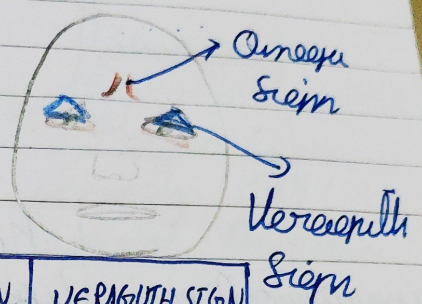 Omega
Sign
Veraguth
Sign
N
VERAGUTH SIGN